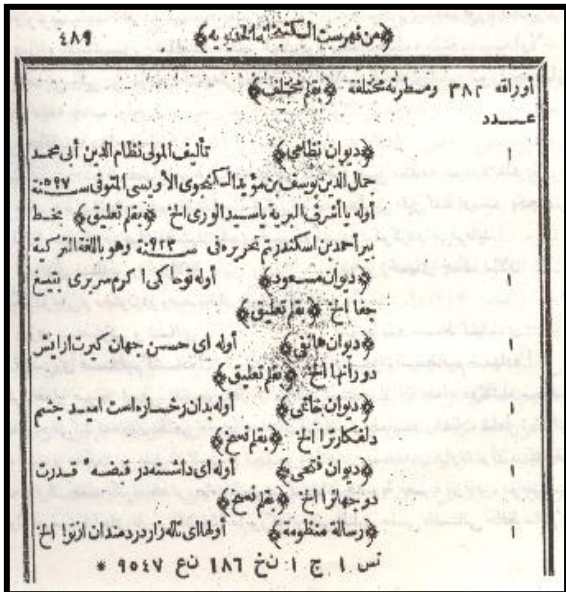 ٤٨٩ ﴿من فهرست الكتبخانه الخديويه﴾
أوراقه ٣٨٢ ومسطرته مختلفة ﴿بقلم مختلف﴾
عدد
١ ﴿ديوان نظامى﴾ تأليف المولى نظام الدين أبى محمد
جمال الدين يوسف بن مؤيد الكنجوى الاويسى المتوفى سنة ٥٩٧
أوله ياأشرف البرية ياسيد الورى الخ ﴿بقلم تعليق﴾ بخط
بير أحمد بن اسكندر تم تحريره فى سنة ٩٢٣ وهو باللغة التركية
١ ﴿ديوان مسعود﴾ أوله توحاكى اكرم سربرى بتيغ
جفا الخ ﴿بقلم تعليق﴾
١ ﴿ديوان هاتفى﴾ أوله اى حسن جهان كيرت ارايش
دورانها الخ ﴿بقلم تعليق﴾
١ ﴿ديوان خاتمى﴾ أوله بدان رخساره است اميد چشم
دلفكارترا الخ ﴿بقلم نسخ﴾
١ ﴿ديوان فتحى﴾ أوله اى داشته در قبضه قدرت
دو جهانرا الخ ﴿بقلم نسخ﴾
١ ﴿رسالة منظومه﴾ أولها اى ناله زار دردمندان از تو الخ
نس ١ ج ١ نخ ١٨٦ نع ٩٥٤٧ *